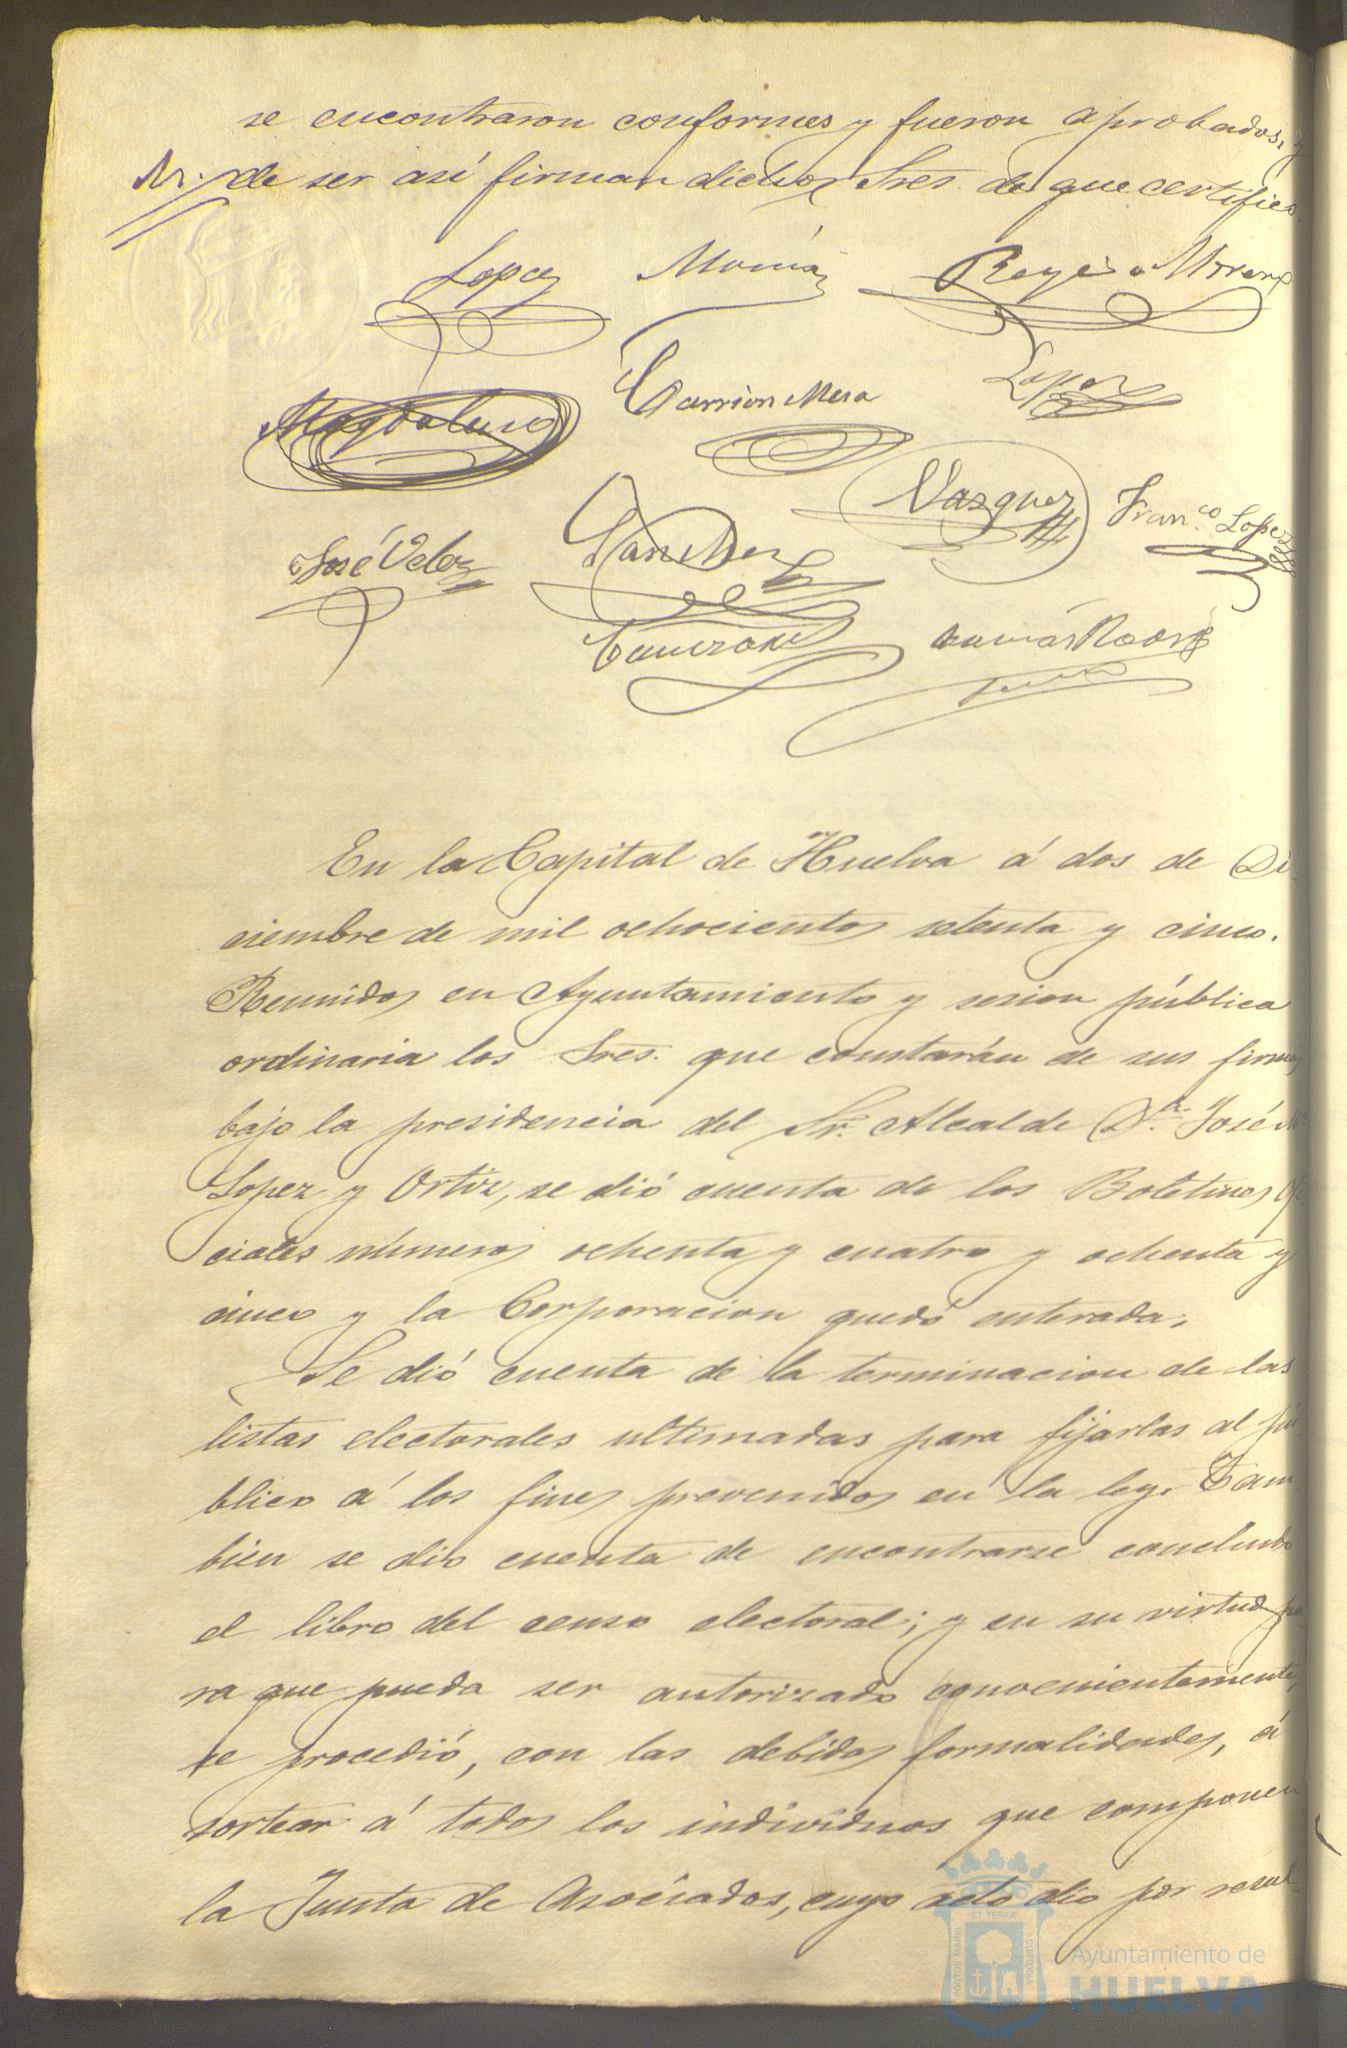 se encontraron conformes y fueron aprobados, y
de ser así firman dichos Sres. de que certifico
Lopez
Reyes Moreno
Magdaleno
Carrion Mesa
Lopez
Vazquez
Fran.co Lopez
José Velez
Sanchez
En la Capital de Huelva á dos de Di-
ciembre de mil ochocientos setenta y cinco.
Reunidos en Ayuntamiento y sesion pública
ordinaria los Sres. que constarán de sus firmas
bajo la presidencia del Sr. Alcalde D.n José M
Lopez y Ortiz, se dió cuenta de los Boletines Ofi
ciales números ochenta y cuatro y ochenta y
cinco y la Corporacion quedó enterada.
Se dió cuenta de la terminacion de las
listas electorales ultimadas para fijarlas al pú
blico á los fines prevenidos en la ley. Tam
bien se dió cuenta de encontrarse concluido
el libro del censo electoral; y en su virtud pa
ra que pueda ser autorizado convenientemente,
se procedió, con las debidas formalidades, á
sortear á todos los individuos que componen
la Junta de Asociados, cuyo acto dió por resul-
Ayuntamiento de
HUELVA